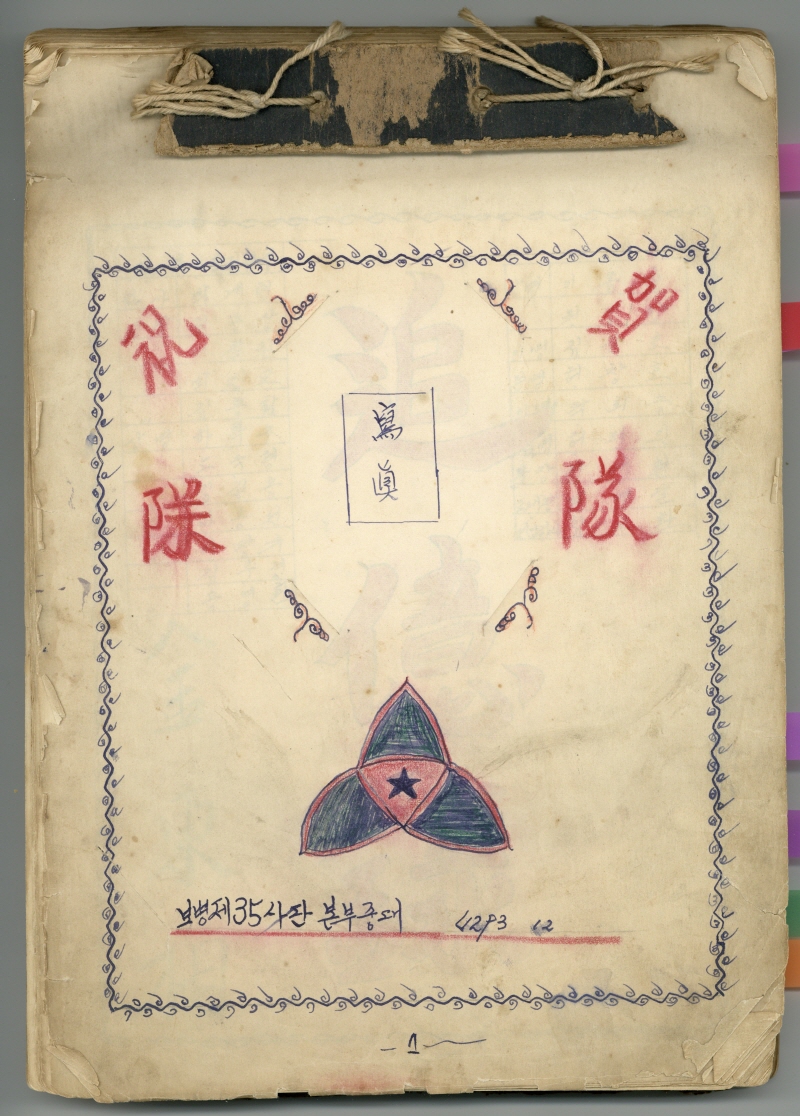 祝 賀
寫
眞
除 隊
보병제35사단 본부중대 4293 12
- 1 -